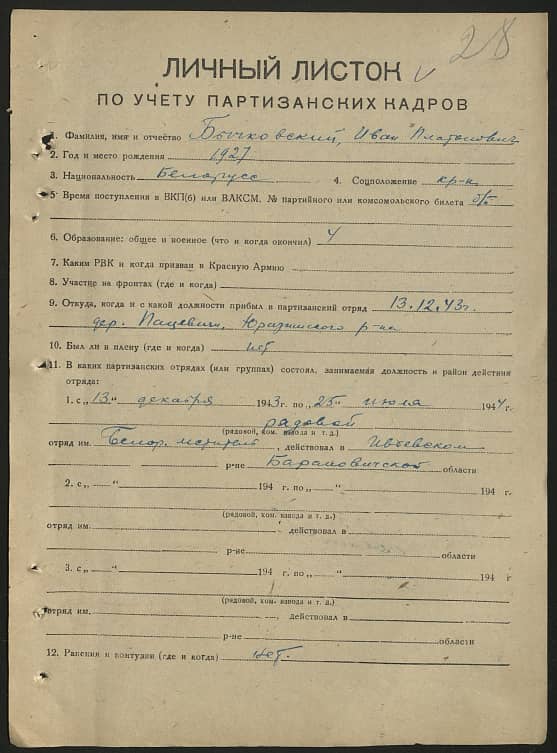 28
ЛИЧНЫЙ ЛИСТОК
ПО УЧЕТУ ПАРТИЗАНСКИХ КАДРОВ
1. Фамилия, имя и отчество Бычковский, Иван Платонович
2. Год и место рождения 1927
3. Национальность Белорусс 4. Соцположение кр-н
5. Время поступления в ВКП(б) или ВЛКСМ. № партийного или комсомольского билета б/п
6. Образование: общее и военное (что и когда окончил) 4
7. Каким РВК и когда призван в Красную Армию
8. Участие на фронтах (где и когда)
9. Откуда, когда и с какой должности прибыл в партизанский отряд 13.12.43г.
дер. Пацевичи, Юратишского р-на
10. Был ли в плену (где и когда) нет
11. В каких партизанских отрядах (или группах) состоял, занимаемая должность и район действия
отряда:
1. с „13“ декабря 1943г. по „25“ июля 1944г.
рядовой
(рядовой, ком. взвода и т. д.)
отряд им. Белор. мститель, действовал в Ивьевском
р-не Барановичской области
2. с „ “ 194 г. по „ “ 194 г.
(рядовой, ком. взвода и т. д.)
отряд им. действовал в
р-не области
3. с „ “ 194 г. по „ “ 194 г
(рядовой, ком. взвода и т. д.)
отряд им. , действовал в
р-не области
12. Ранения и контузии (где и когда) нет.